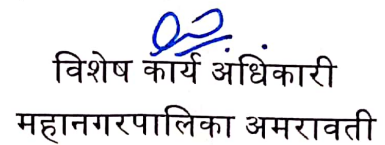 विशेष कार्य अधिकारी
महानगरपालिका अमरावती